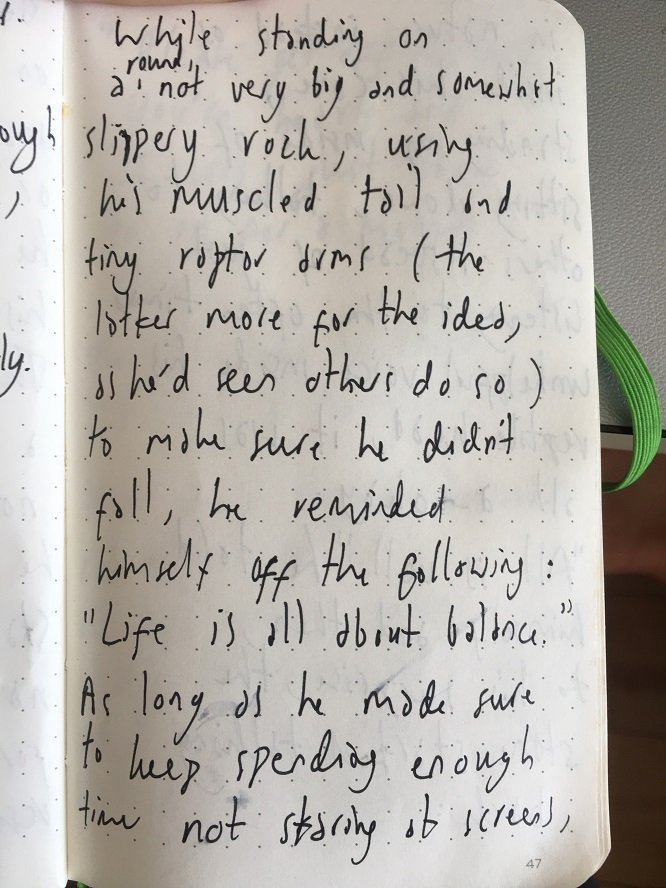 r.
ough
,
ly.
While standing on
round,
a not very big and somewhat
slippery rock, using
his muscled tail and
tiny raptor arms (the
latter more for the idea,
as he'd seen others do so)
to make sure he didn't
fall, he reminded
himself off the following:
"Life is all about balance."
As long as he made sure
to keep spending enough
time not staring at screens,
47